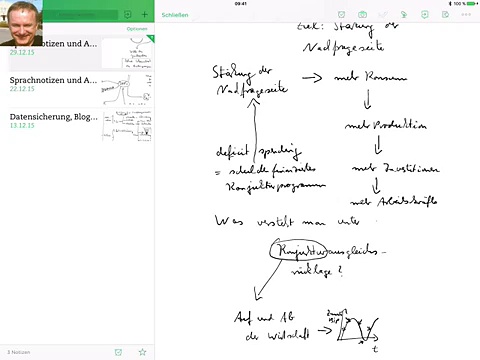 09:41
100%
Optionen
Schließen
notizen und A...
29.12.15
Sprachnotizen und A...
22.12.15
Datensicherung, Blog...
13.12.15
3 Notizen
Ziel: Stärkung der
Nachfrageseite
Stärkung der
Nachfrageseite → mehr Konsum
mehr Produktion
deficit spending
= schuldenfinanziertes
Konjunkturprogramm
mehr Investitionen
mehr Arbeitskräfte
Was versteht man unter
Konjunkturausgleichs-
rücklage?
Auf und Ab
der Wirtschaft →
BIP
t